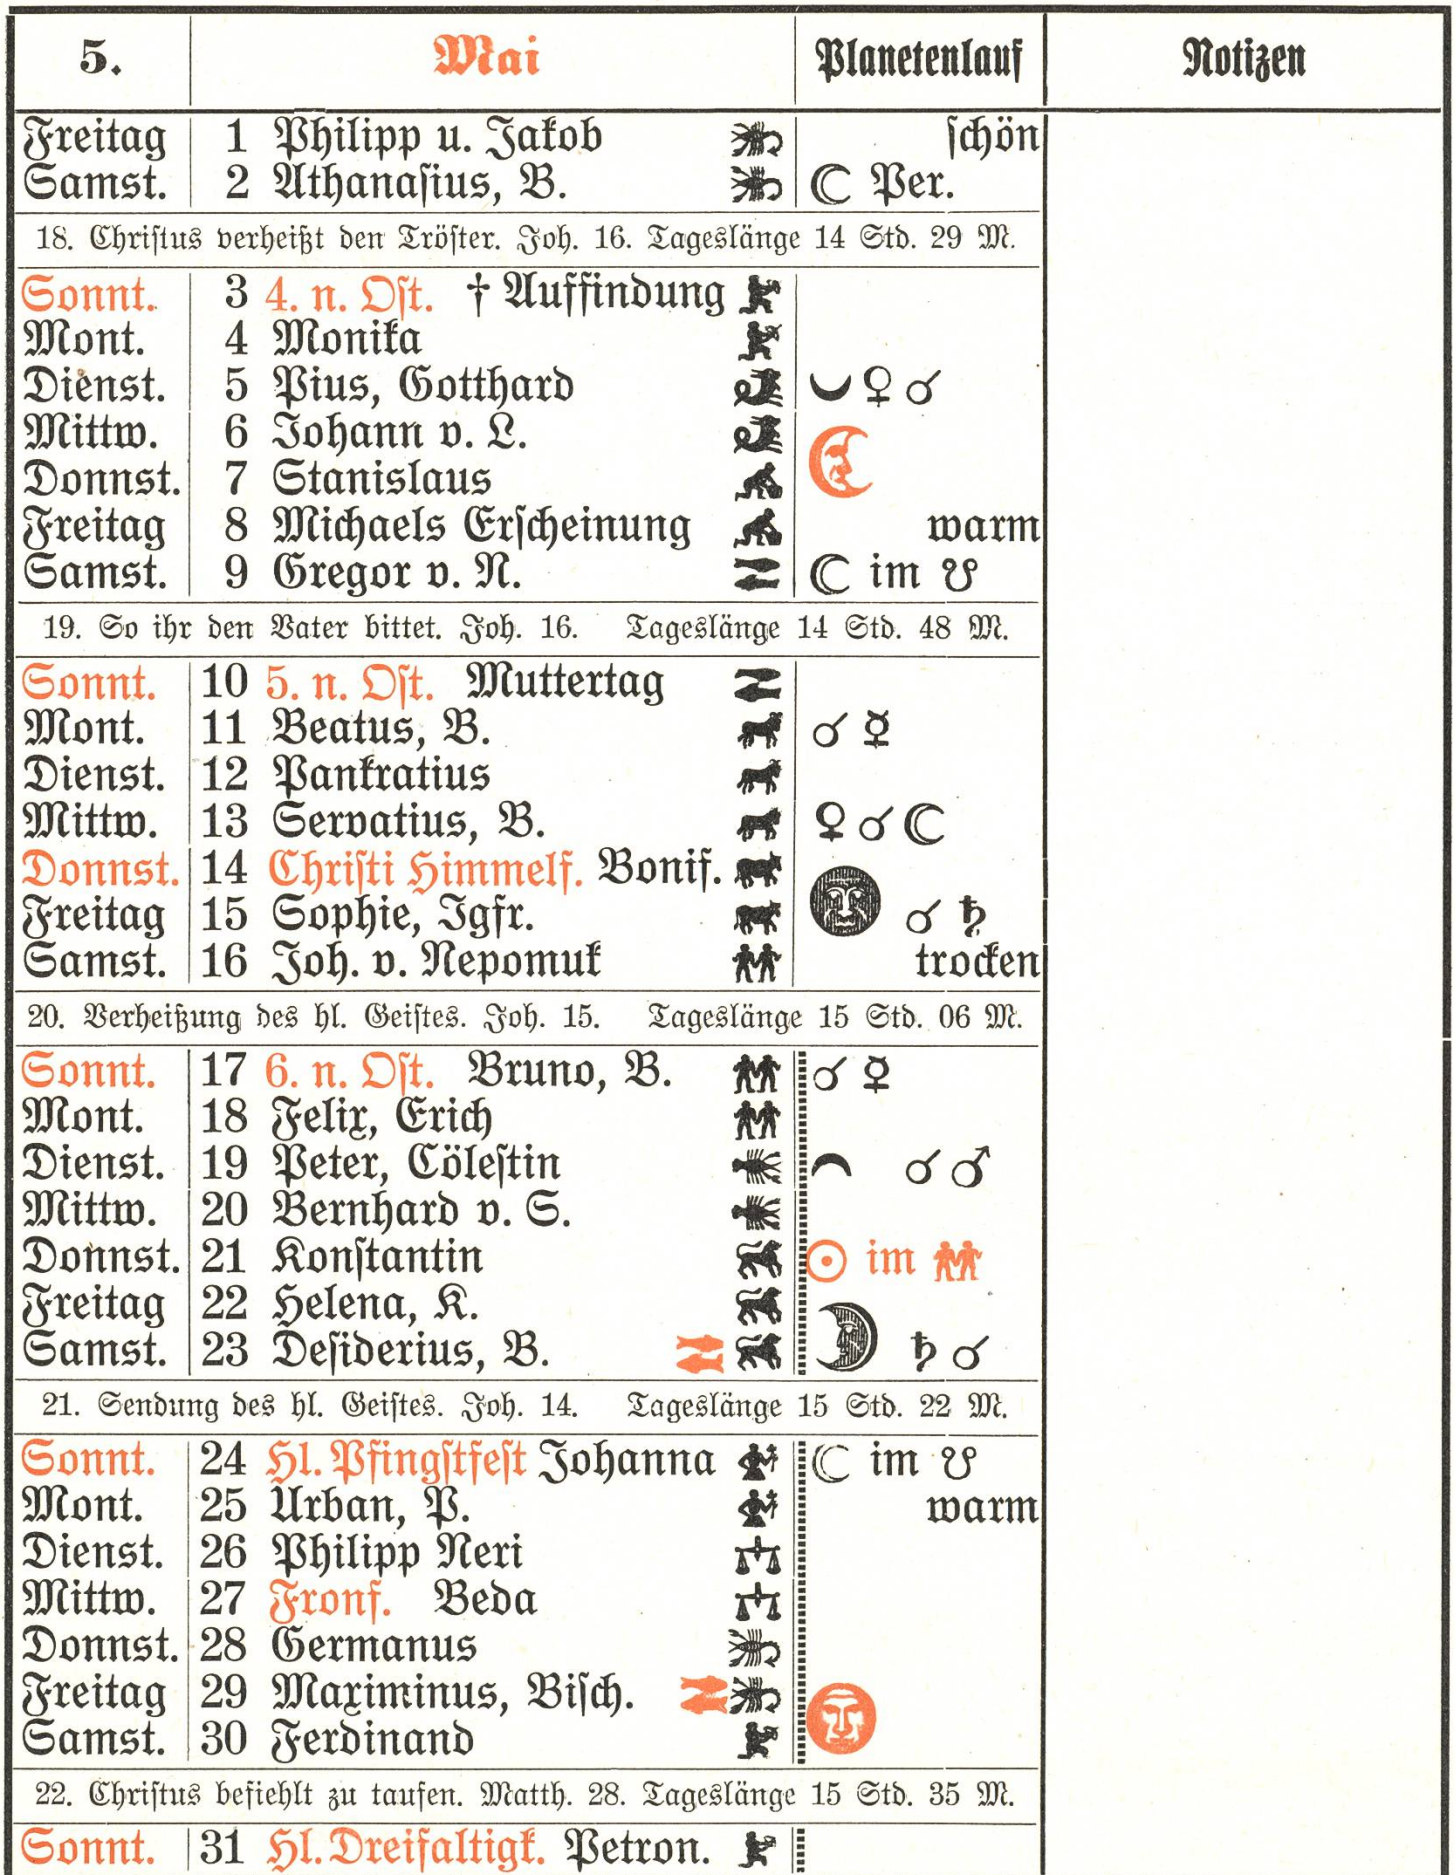 5. Mai Planetenlauf Notizen
Freitag 1 Philipp u. Jakob schön
Samst. 2 Athanasius, B. ☾ Per.
18. Christus verheißt den Tröster. Joh. 16. Tageslänge 14 Std. 29 M.
Sonnt. 3 4. n. Ost. † Auffindung
Mont. 4 Monika
Dienst. 5 Pius, Gotthard ♀ ☌
Mittw. 6 Johann v. L.
Donnst. 7 Stanislaus
Freitag 8 Michaels Erscheinung warm
Samst. 9 Gregor v. N. ☾ im ☋
19. So ihr den Vater bittet. Joh. 16. Tageslänge 14 Std. 48 M.
Sonnt. 10 5. n. Ost. Muttertag
Mont. 11 Beatus, B. ☌ ☿
Dienst. 12 Pankratius
Mittw. 13 Servatius, B. ♀ ☌ ☾
Donnst. 14 Christi Himmelf. Bonif.
Freitag 15 Sophie, Igfr. ☌ ♄
Samst. 16 Joh. v. Nepomuk trocken
20. Verheißung des hl. Geistes. Joh. 15. Tageslänge 15 Std. 06 M.
Sonnt. 17 6. n. Ost. Bruno, B. ☌ ☿
Mont. 18 Felix, Erich
Dienst. 19 Peter, Cölestin ☌ ♂
Mittw. 20 Bernhard v. S.
Donnst. 21 Konstantin ☉ im
Freitag 22 Helena, K.
Samst. 23 Desiderius, B. ♄ ☌
21. Sendung des hl. Geistes. Joh. 14. Tageslänge 15 Std. 22 M.
Sonnt. 24 Hl. Pfingstfest Johanna ☾ im ☋
Mont. 25 Urban, P. warm
Dienst. 26 Philipp Neri
Mittw. 27 Fronf. Beda
Donnst. 28 Germanus
Freitag 29 Maximinus, Bisch.
Samst. 30 Ferdinand
22. Christus befiehlt zu taufen. Matth. 28. Tageslänge 15 Std. 35 M.
Sonnt. 31 Hl. Dreifaltigk. Petron.